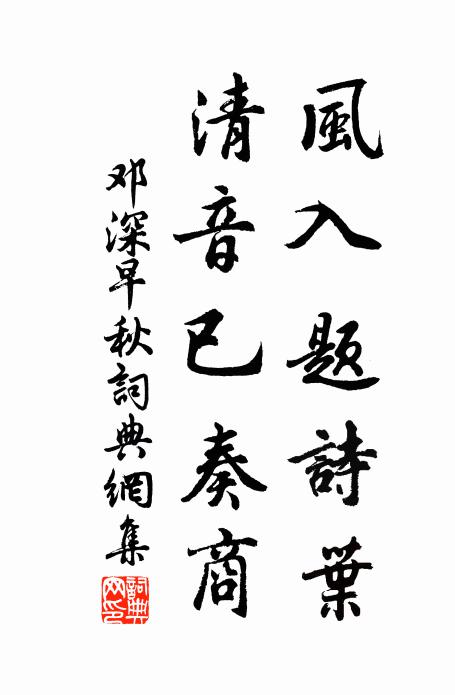 風入題詩葉
清音已奏商
邓深早秋詞典網集
詞典网印